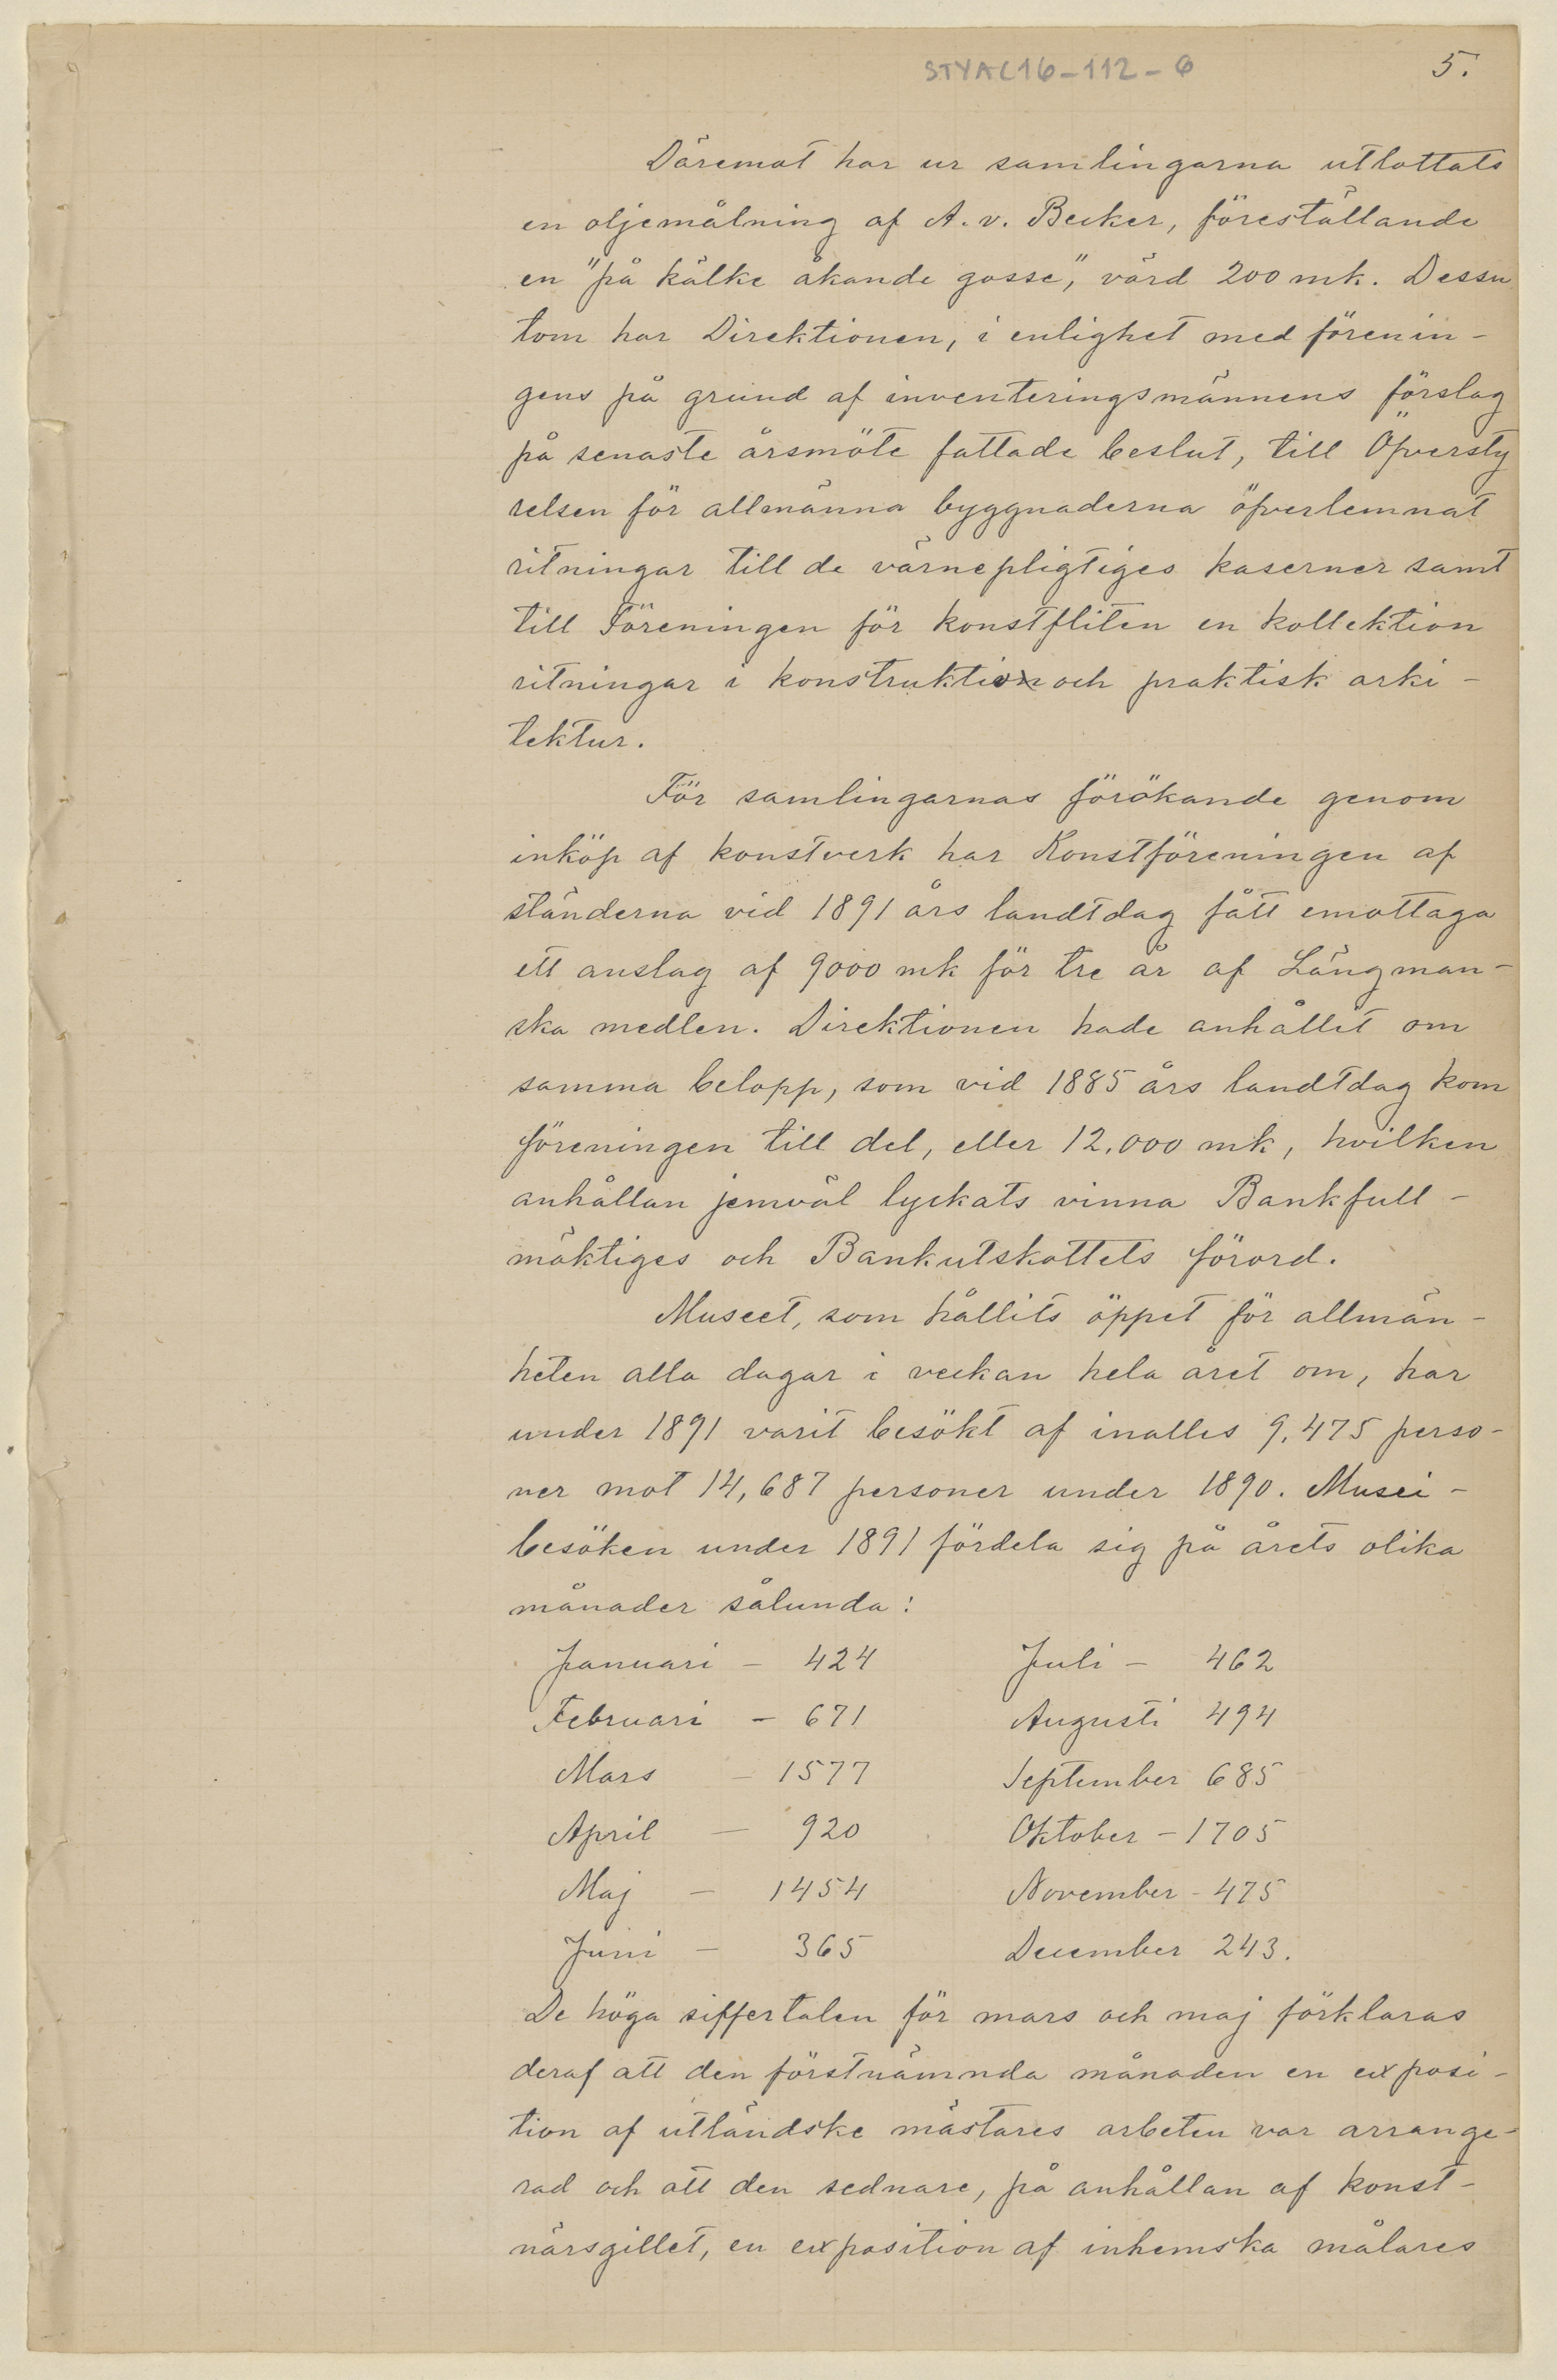 STYAC16-112-6
5.
Däremot har ur samlingarna utlottats
en oljemålning af A. v. Becker, föreställande
en "på kälke åkande gosse", värd 200 mk. Dessu
tom har Direktionen, i enlighet med förenin-
gens på grund af inventeringsmännens förslag
på senaste årsmöte fattade beslut, till Öfversty
relsen för allmänna byggnaderna öfverlemnat
ritningar till de värnepligtiges kaserner samt
till Föreningen för konstfliten en kollektion
ritningar i konstruktion och praktisk arki-
tektur.
För samlingarnas förökande genom
inköp af konstverk har Konstföreningen af
ständerna vid 1891 års landtdag fått emottaga
ett anslag af 9000 mk för tre år af Längman-
ska medlen. Direktionen hade anhållit om
samma belopp, som vid 1885 års landtdag kom
föreningen till del, eller 12.000 mk, hvilken
anhållan jemväl lyckats vinna Bankfull-
mäktiges och Bankutskottets förord.
Museet, som hållits öppet för allmän-
heten alla dagar i veckan hela året om, har
under 1891 varit besökt af inalles 9,475 perso-
ner mot 14,687 personer under 1890. Musei-
besöken under 1891 fördela sig på årets olika
månader sålunda:
Januari - 424 Juli - 462
Februari - 671 Augusti 494
Mars - 1577 September 685
April - 920 Oktober - 1705
Maj - 1454 November - 475
Juni - 365 December 243.
De höga siffertalen för mars och maj förklaras
deraf att den förstnämnda månaden en exposi-
tion af utländske mästares arbeten var arrange-
rad och att den sednare, på anhållan af konst-
närsgillet, en exposition af inhemska målares